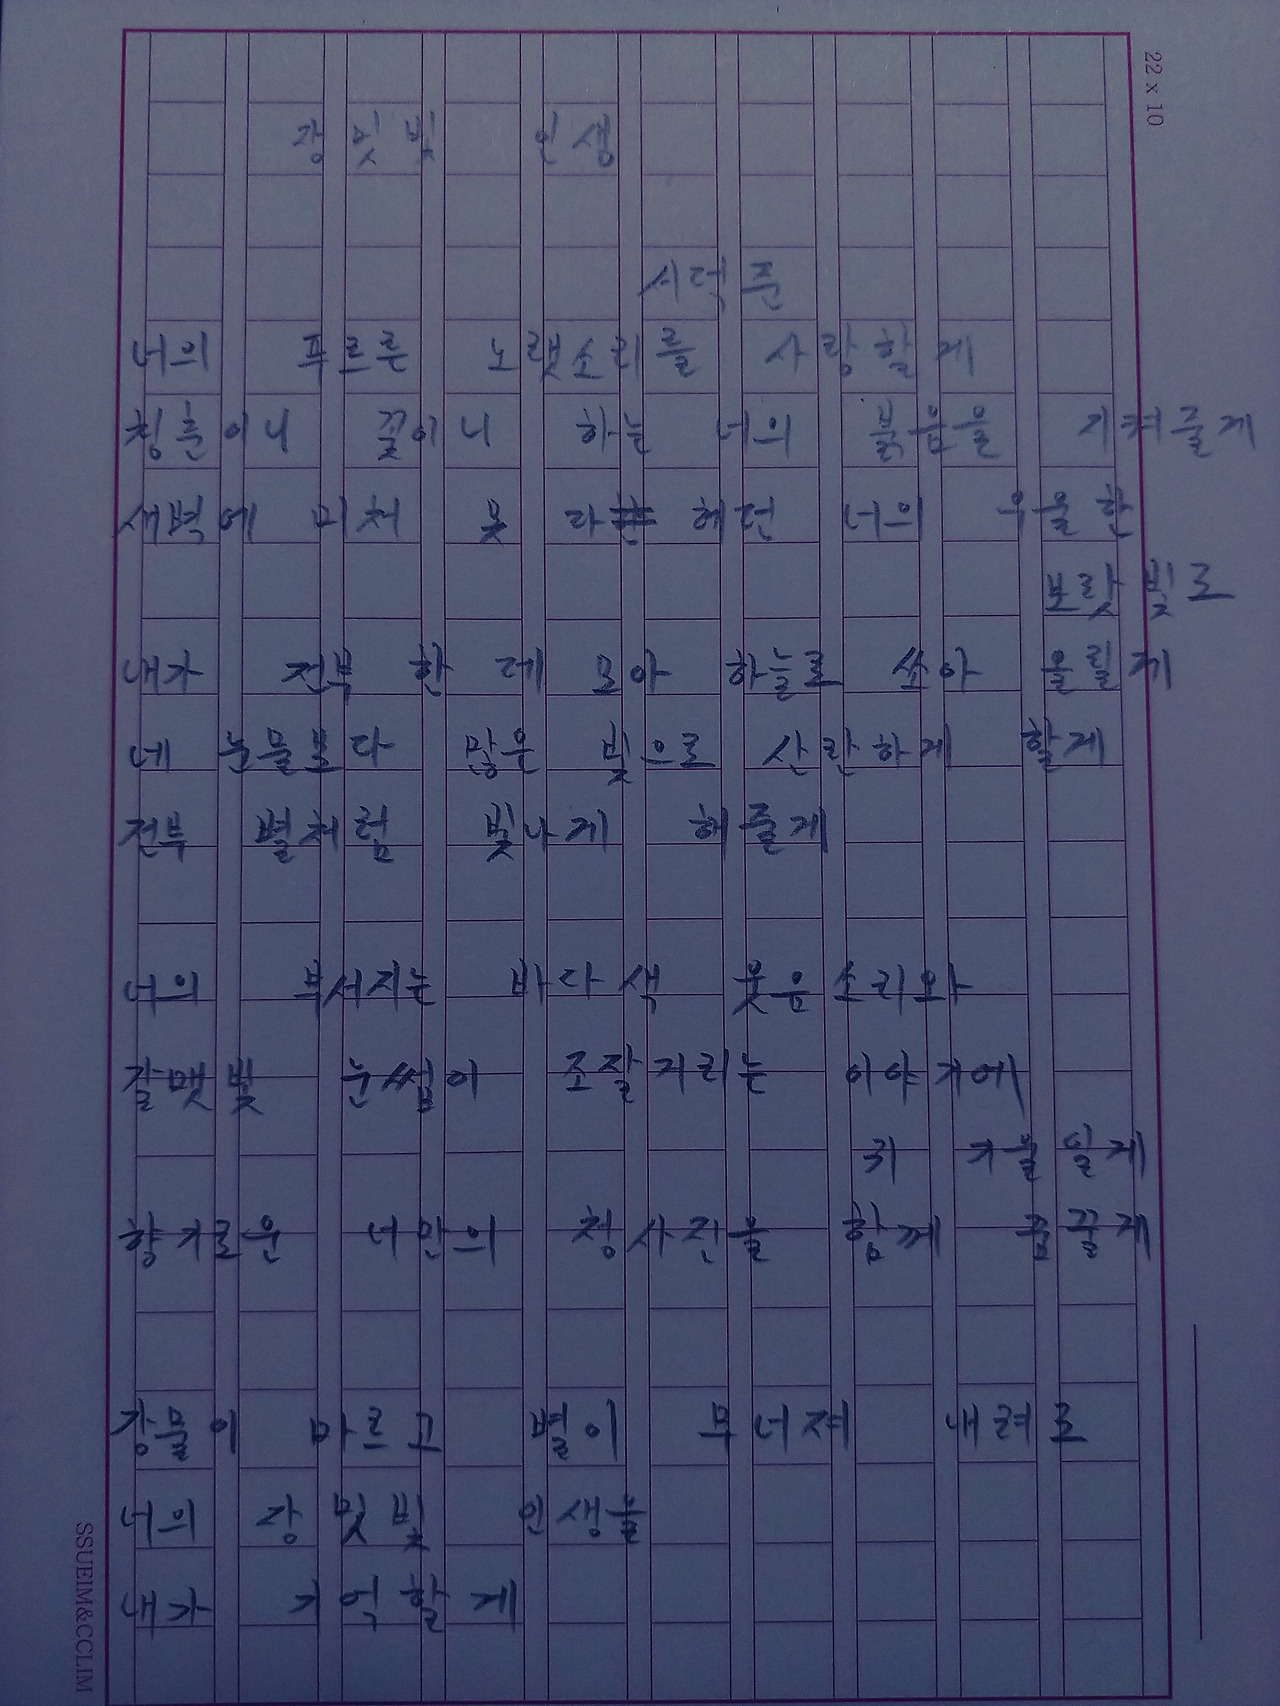 22 x 10
장밋빛 인생
서덕준
너의 푸르른 노랫소리를 사랑할게
청춘이니 꽃이니 하는 너의 붉음을 지켜줄게
새벽에 미처 못 다 헤던 너의 우울한
보랏빛로
내가 전부 한 데 모아 하늘로 쏘아 올릴게
네 눈물보다 많은 빛으로 산란하게 할게
전부 별처럼 빛나게 해줄게
너의 부서지는 바다색 웃음소리와
갈맷빛 눈썹이 조잘거리는 이야기에
귀 기울일게
향기로운 너만의 청사진을 함께 꿈꿀게
강물이 마르고 별이 무너져 내려도
너의 장밋빛 인생을
내가 기억할게
SSUEIM&CCLIM